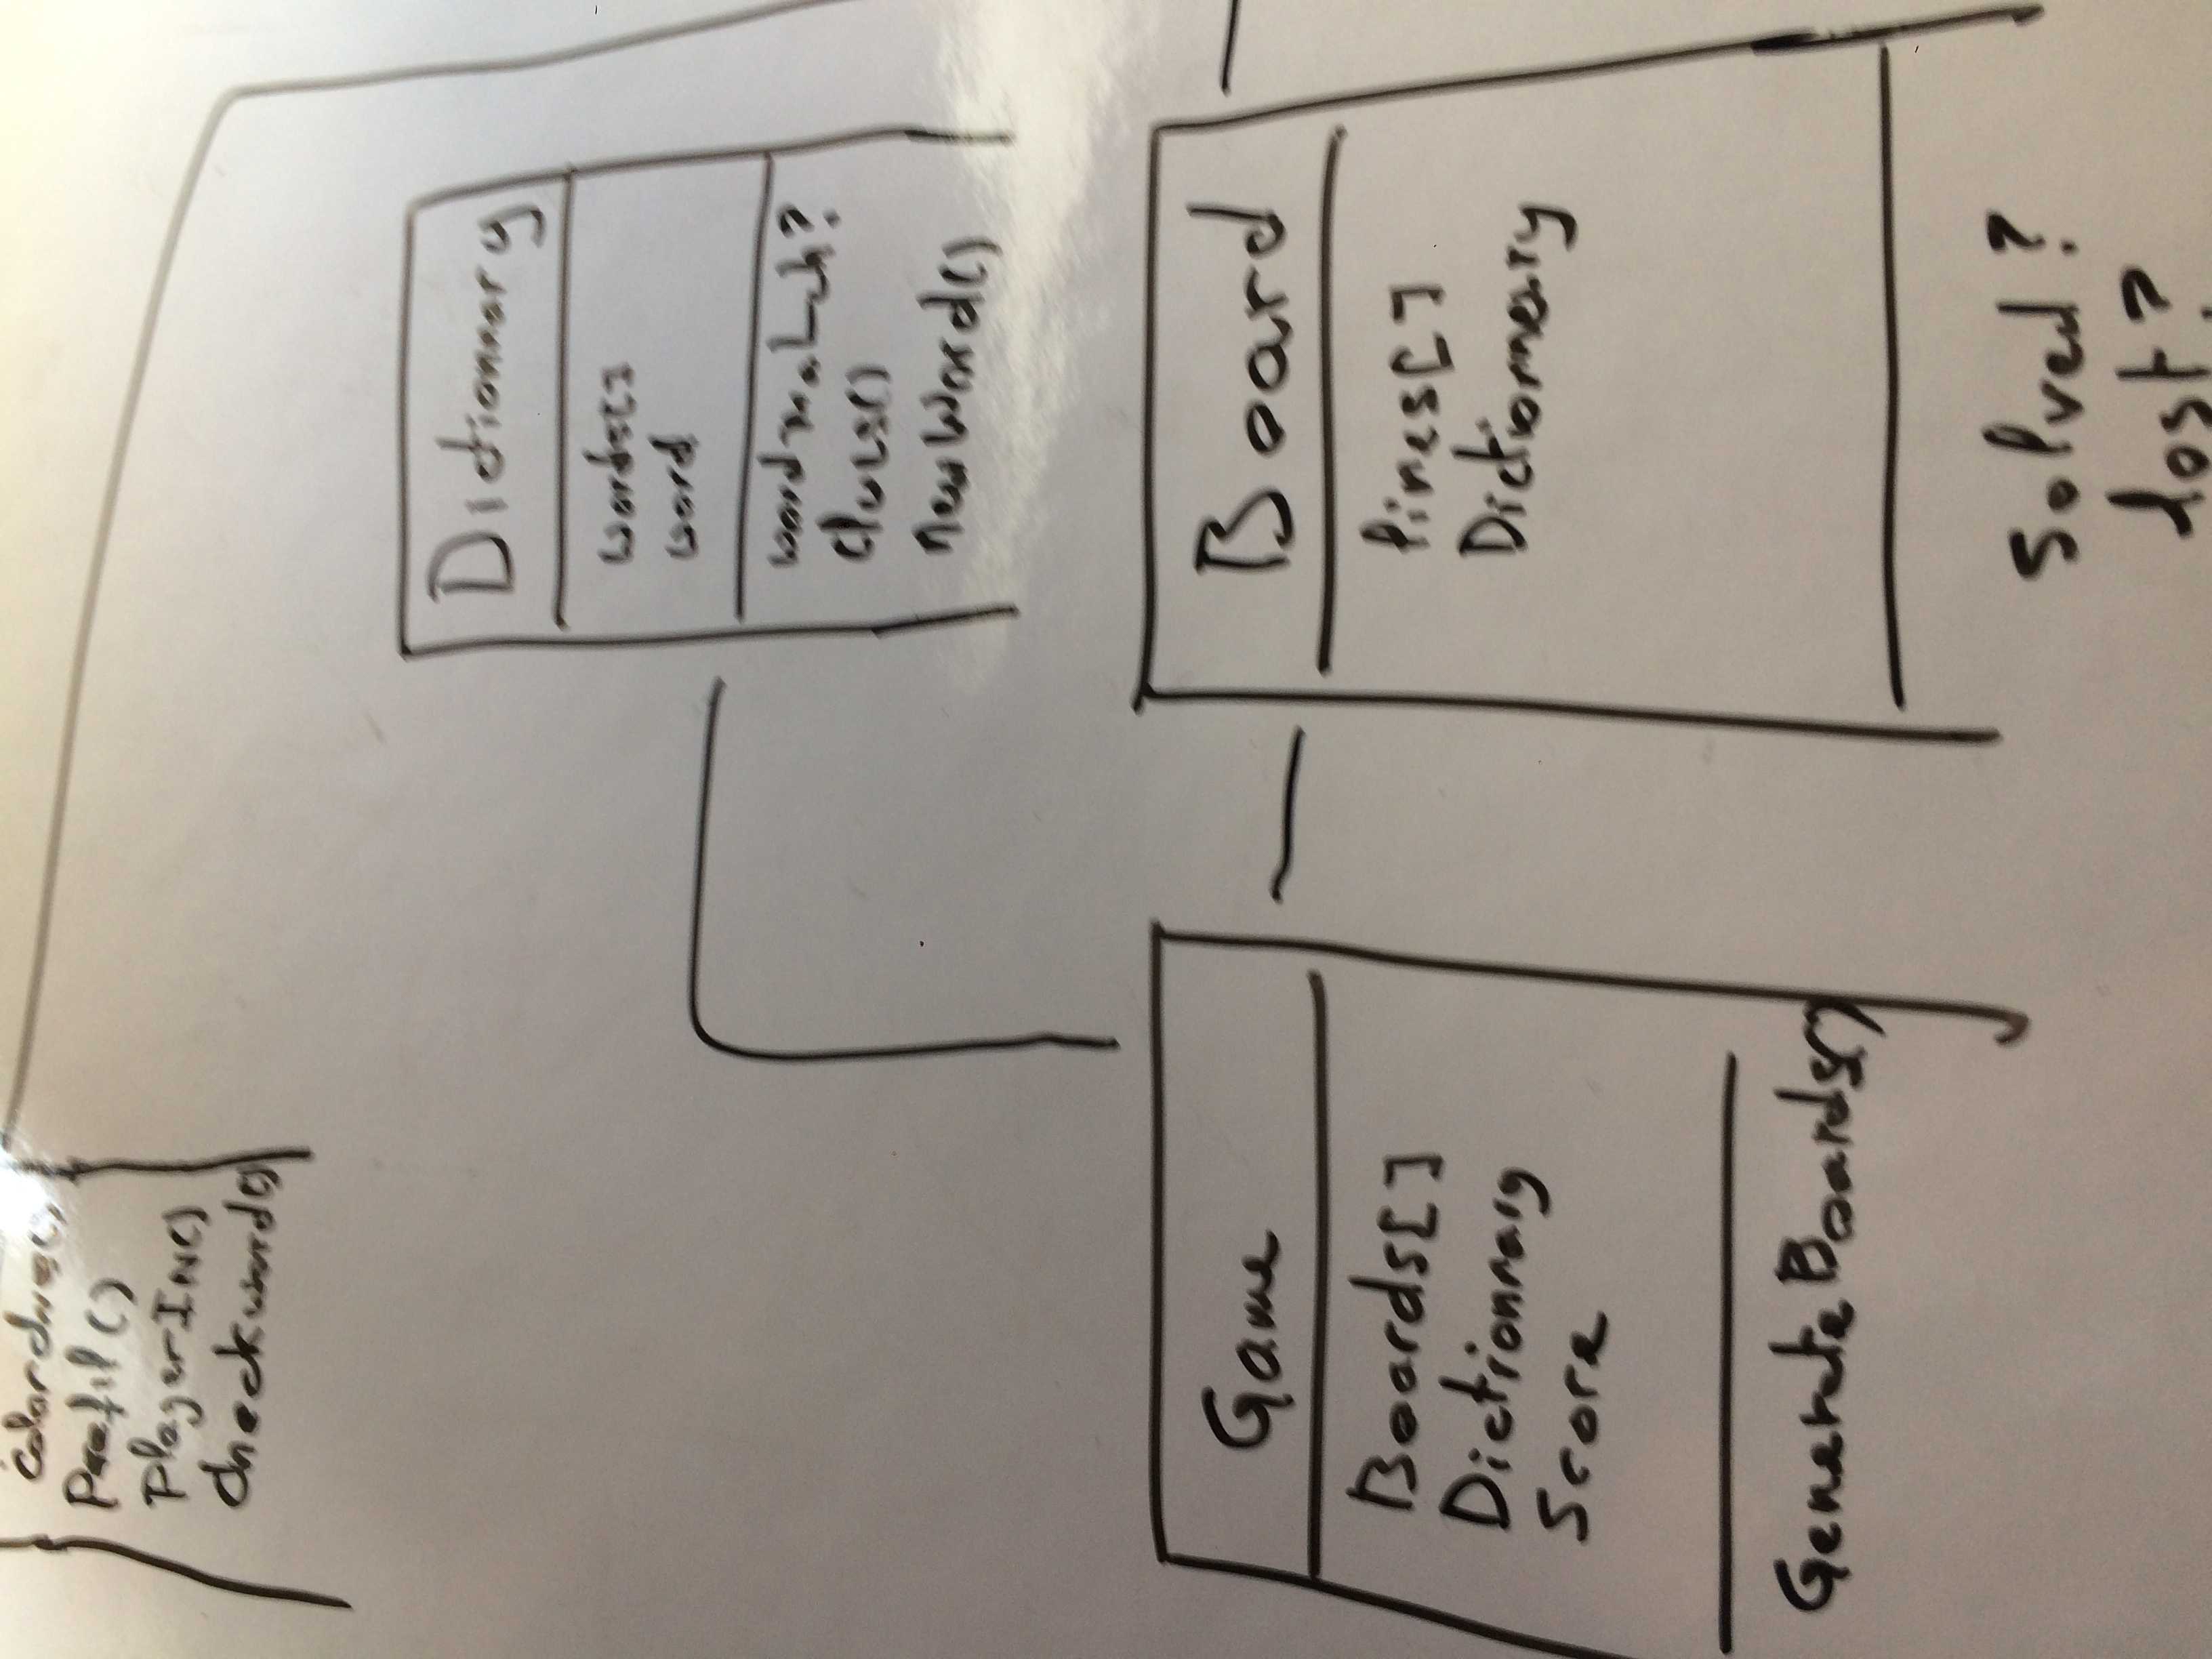 Prefil()
PlayerIN()
Checkword()
Dictionnary
words[]
word
wordmatch?
Clues()
newWord()
Game
Boards[]
Dictionnary
Score
GenerateBoards()
Board
lines[]
Dictionnary
Solved?
lost?